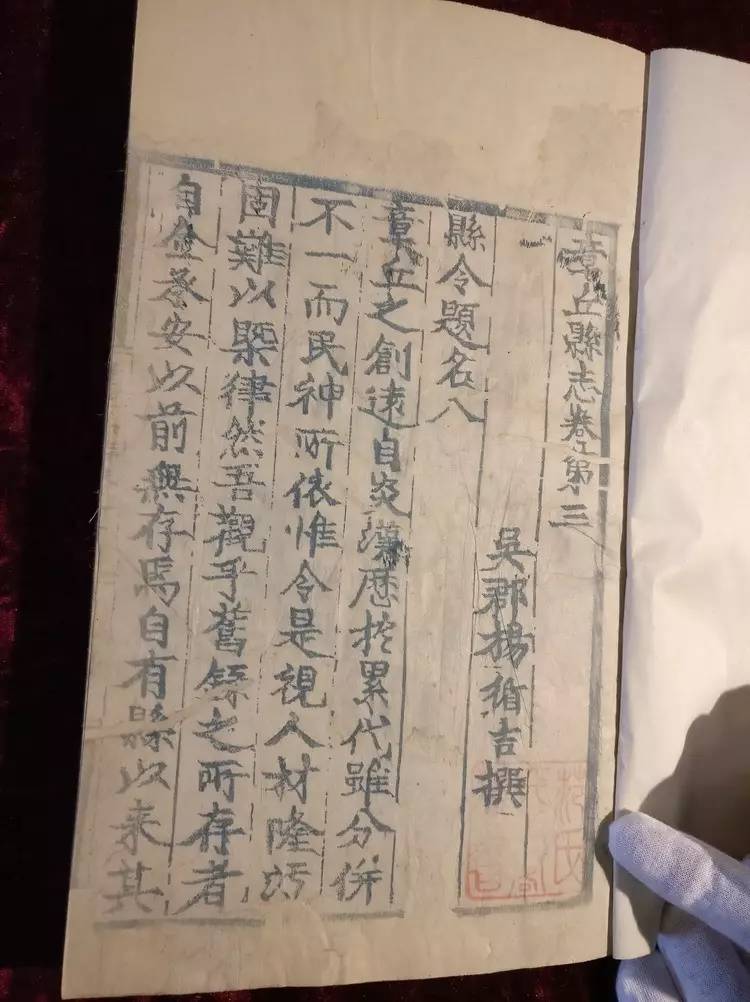 章丘縣志卷第三
吳郡楊循吉撰
縣令題名八
章丘之創遠自炎漢歷於累代雖分併
不一而民神所依惟令是視人材隆污
固難以槩律然吾觀乎舊錄之所存者
自金泰安以前無存焉自有縣以来其